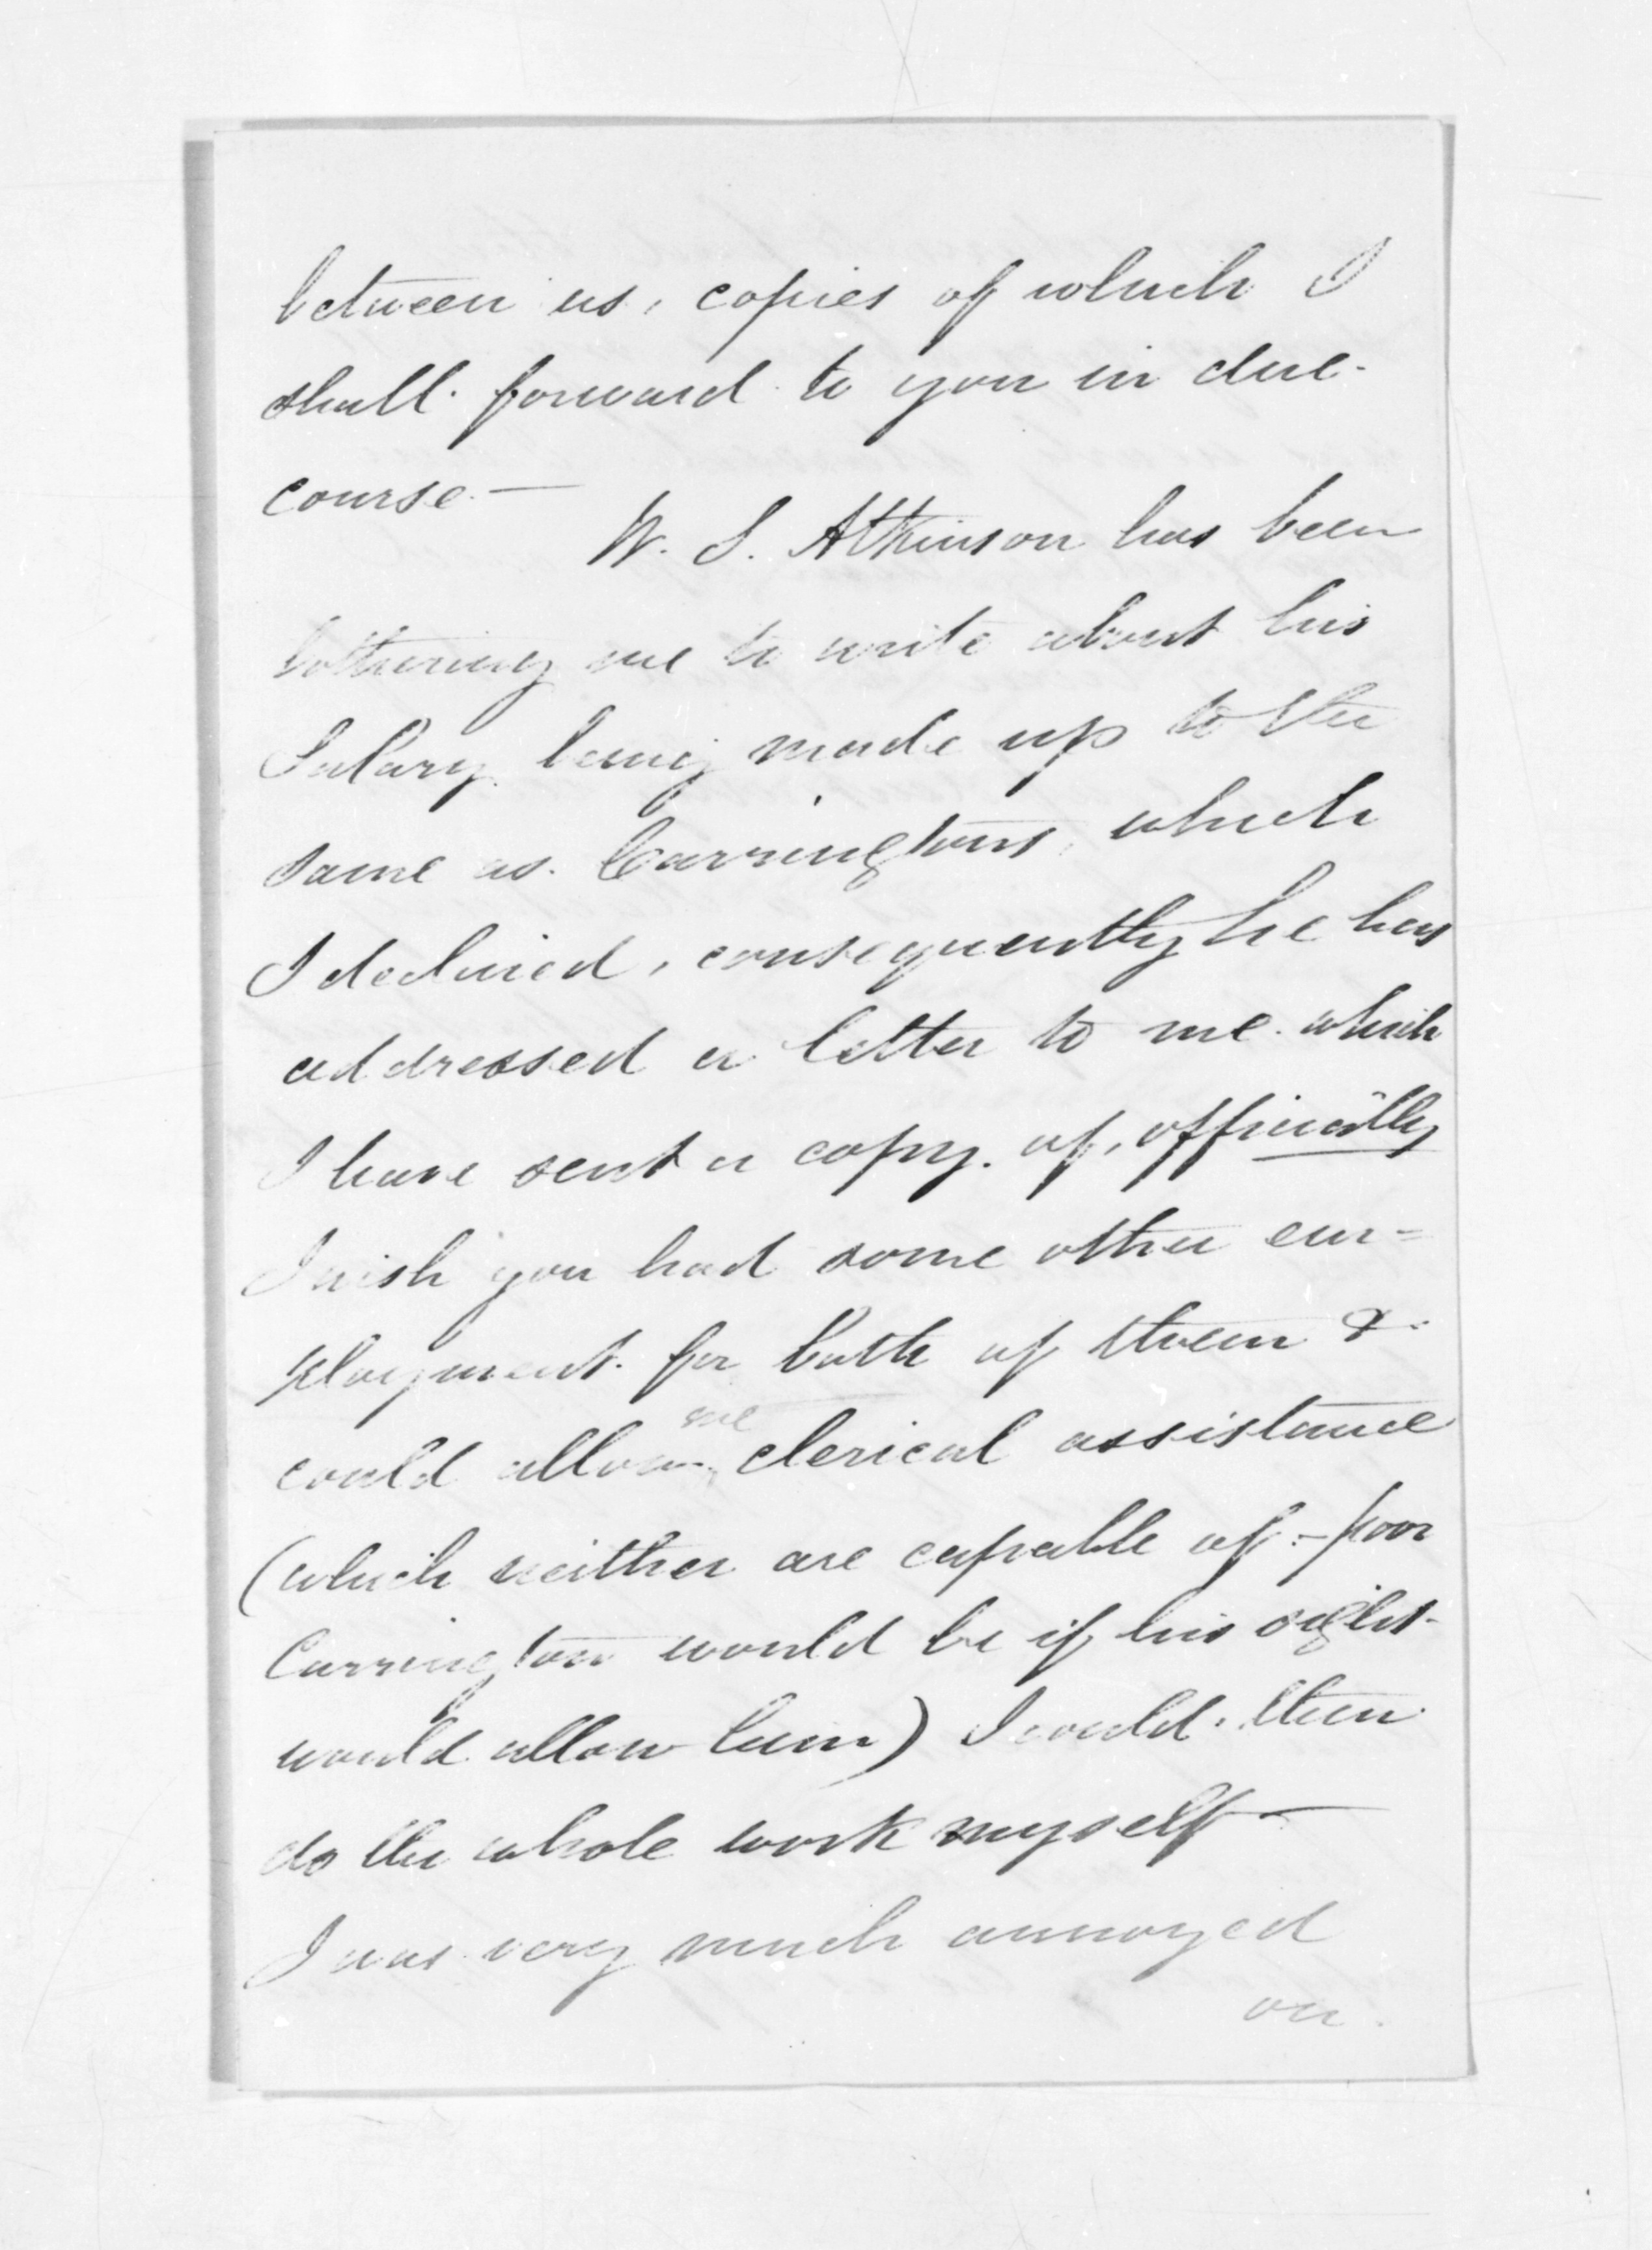 between us, copies of which I
shall forward to you in due
course —
W. S. Atkinson has been
bothering me to write about his
Salary being made up to the
same as Carringtons, which
I declined, consequently he has
addressed a letter to me which
I have sent a copy of, officially
I wish you had some other em=
ployment for both of them &
could allow me clerical assistance
(which neither are capable of - poor
Carrington would be if his sight
would allow him) I could then
do the whole work myself —
I was very much annoyed
on